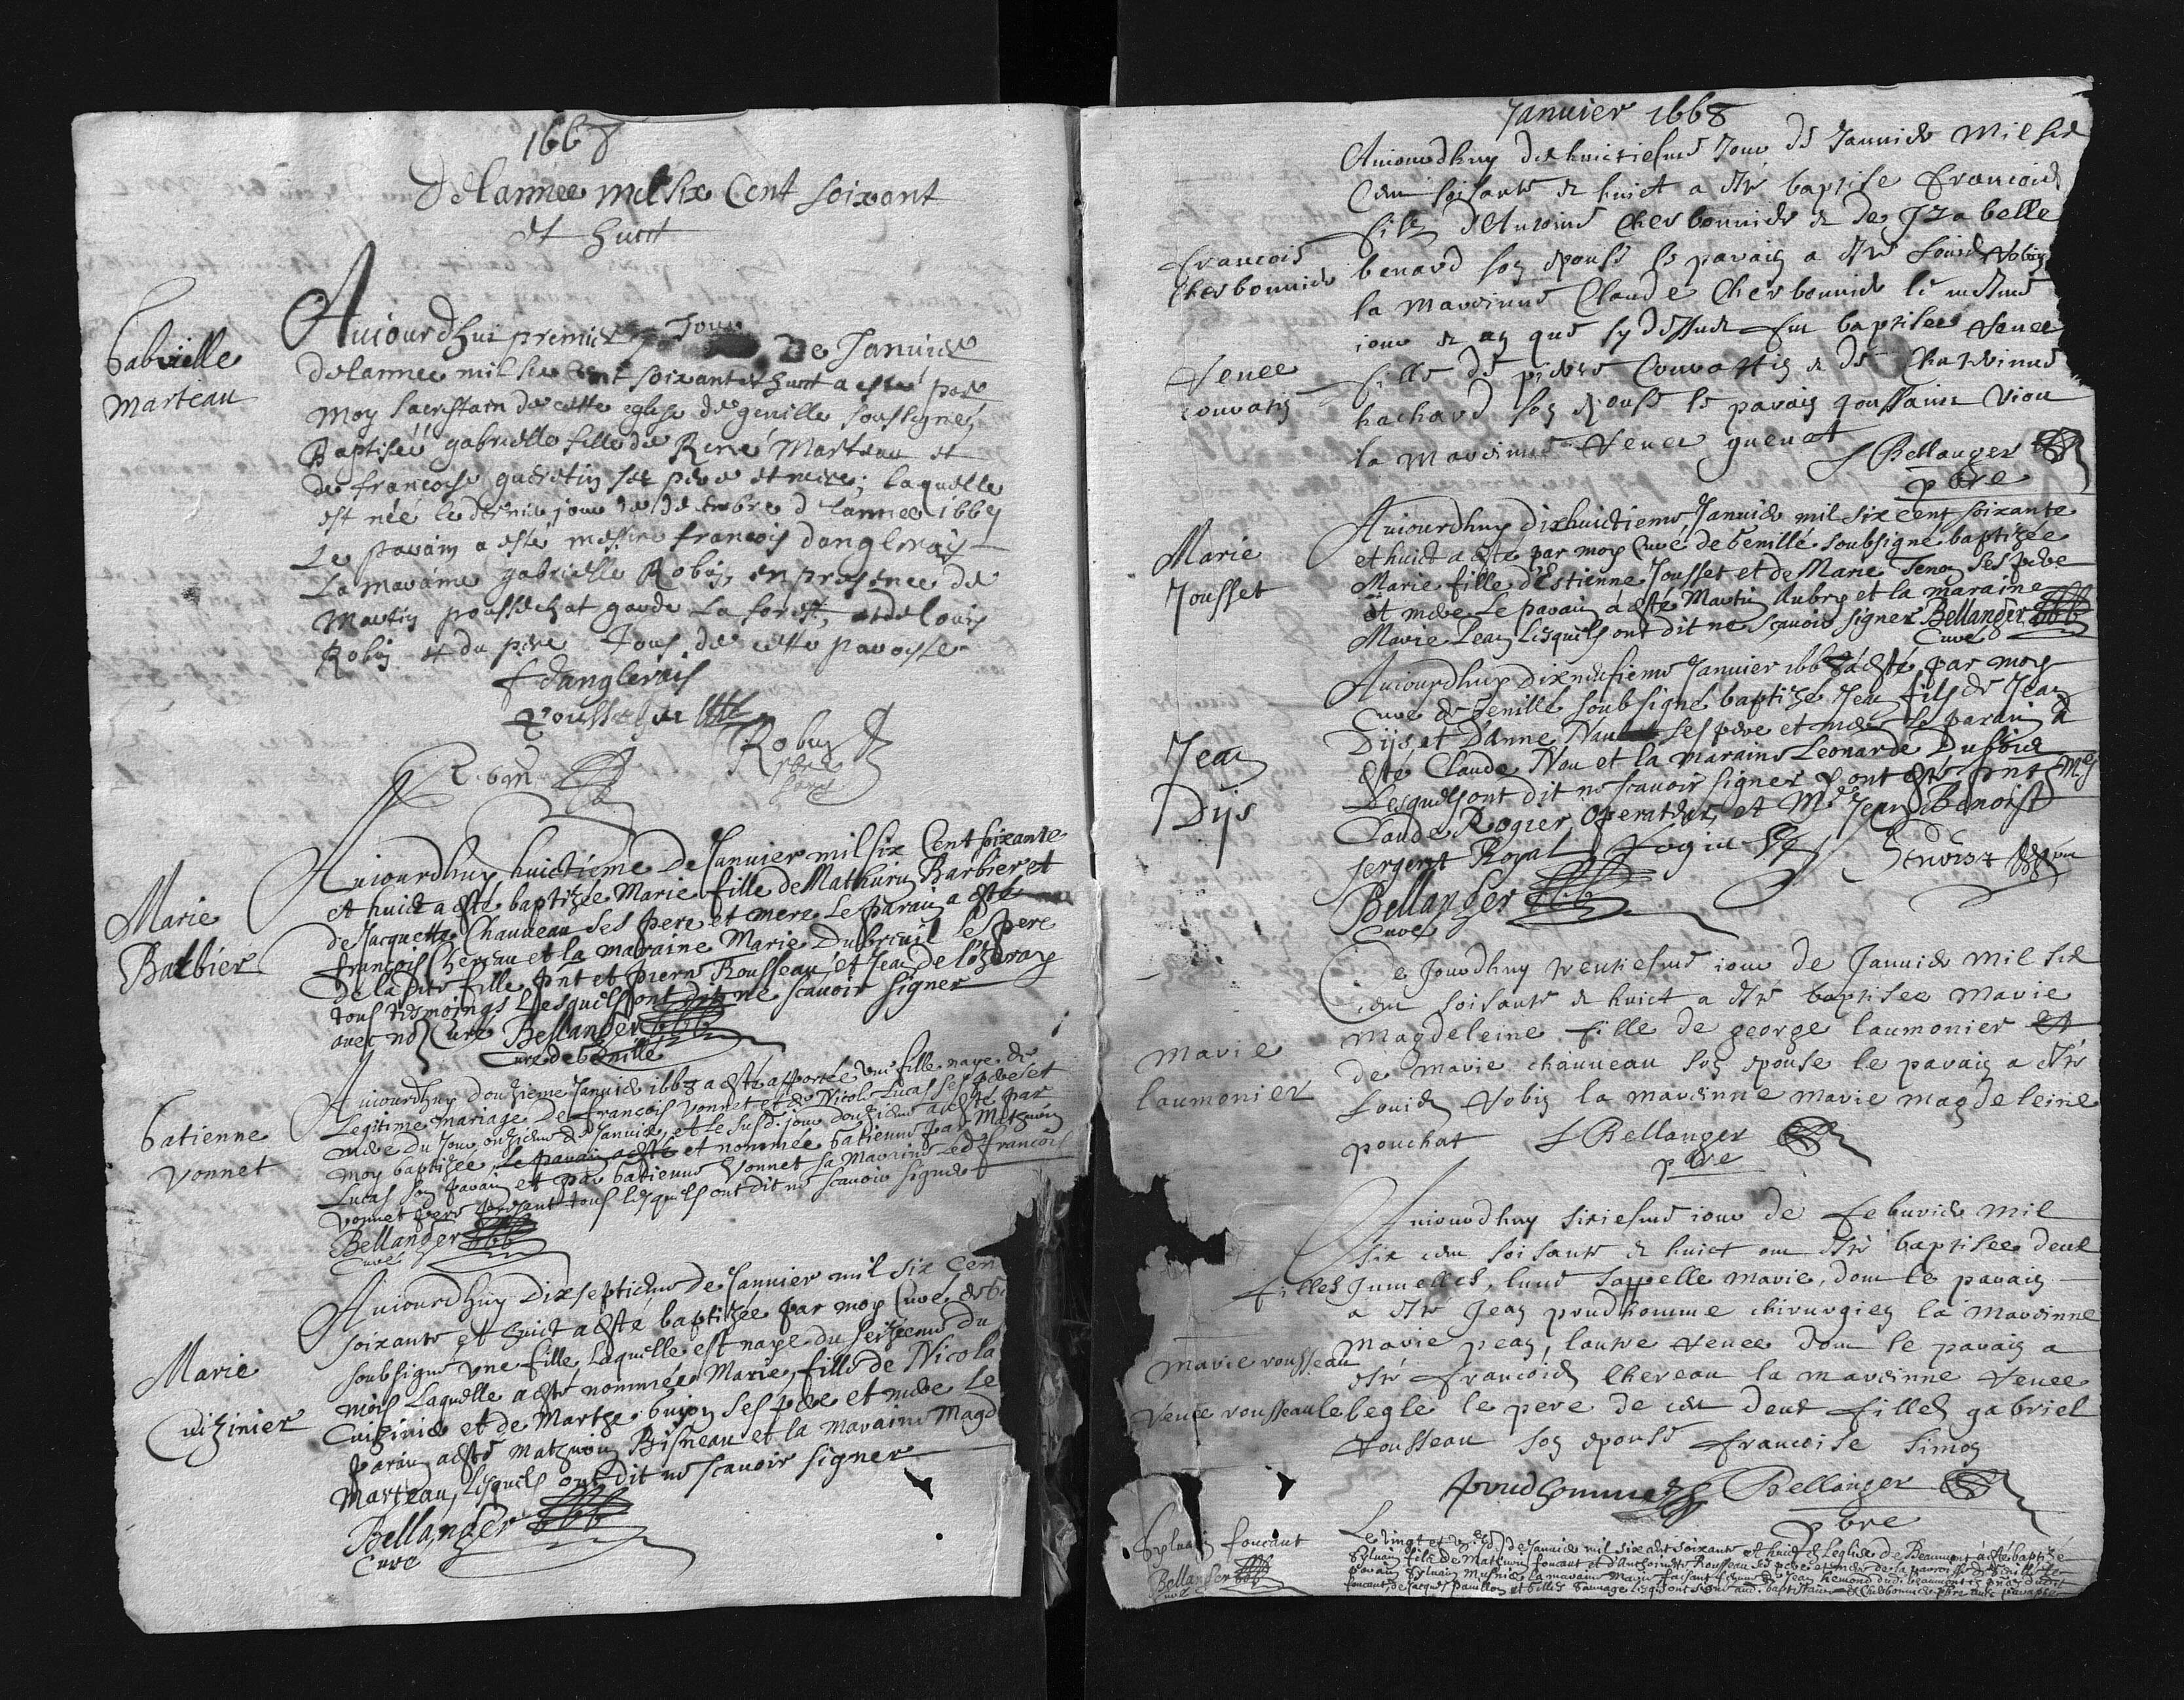 1668
De lannee mil six Cent soixant
et huict
Gabrielle
Marteau
Aujourdhui premier Jour De Janvier
de lannee mil six cent soixant et huict a esté par
moy sacristain de cette eglise de genille soussigné
Baptisée gabrielle fille de René Marteau et
de francoise ses pere et mere; laquelle
est née le dernier jour de decembre de lannee 1667
Le parain a esté messire francois danglerais
La maraine gabrielle Robin en presence de
Martin poussechat garde La forest, et de louis
Robin et du pere Tous de cette paroisse
f danglerais
Robin
Marie
Barbier
Aujourdhuy huictieme De Janvier mil six Cent soixante
et huict a esté baptizée Marie fille de Mathurin Barbier et
de Jacquette Chauveau ses pere et mere Le parain a esté
françois Chereau et la maraine Marie Dubreuil Le pere
de la fille pnt et pierre Rousseau et Jean de
tous tesmoings Lesquels ont dit ne scavoir signer
avec nos Curé Bellanger
Curé de Genillé
Gatienne
Vonnet
Aujourdhuy douzieme Janvier 1668 a esté apportée une fille naye de
Legitime mariage De francois Vonnet et de Nicole Lucas ses pere et
mere du jour onzieme de Janvier, et le susd. jour douzieme a esté par
moy baptizée, Le parain a esté et nommée Gatienne par Mathurin
Lucas son parain et par Gatienne Vonnet sa maraine Led francois
Vonnet pere present tous lesquels ont dit ne scavoir signer
Bellanger
Curé
Marie
Cuizinier
Aujourdhuy Dixseptieme De Janvier mil six cen
soixante et huict a esté baptizée par moy Curé de Ge
soubsigné une fille Laquelle est naye du seizieme du
mois Laquelle a esté nommée Marie, fille de Nicola
Cuizinier et de Marthe Guion ses pere et mere Le
parain a esté Mathurin Bisneau et la maraine Magd
Marteau, Lesquels ont dit ne scavoir signer
Bellanger
Curé
Janvier 1668
Aujourdhuy dixhuictiesme Jour de Janvier mil six
Cent soisante et huict a esté baptise francois
fils d'Antoine Cherbonnier et de Izabelle
francois
Cherbonnier
benard son epouse le parain a esté Louis Robin
la maraine Claude Cherbonnier le mesme
jour et an que sy dessus fut baptisee Renee
Renee
fille de pierre Couratin et de Chaterinne
couratin
hachard son epouse le parain Toussaint Viou
la maraine Renee guenet
L Bellanger
pbre
Marie
Jousset
Aujourdhuy dixhuictieme Janvier mil six cent soixante
et huict a esté par moy Curé de Genillé soubsigné baptizée
Marie fille d'Estienne Jousset et de Marie Tenon ses pere
et mere Le parain a esté Martin Aubry et la maraine
Marie Pean Lesquels ont dit ne scavoir signer Bellanger
Curé
Jean
Dijs
Aujourdhuy Dixneufieme Janvier 1668 a esté par moy
Curé de Genillé soubsigné baptizé Jean fils de Jean
Dijs et Danne Nau ses pere et mere Le parain a
esté Claude Nau et la maraine Leonarde
Lesquels ont dit ne scavoir signer y ont esté pnt Me
Claude Rogier et Me Jean Benoist
sergent Royal
Bellanger
Curé
Ce Jourdhuy trentiesme jour de Janvier mil six
cent soisante et huict a esté baptisee Marie
Magdeleine fille de george laumonier et
Marie
laumonier
de marie chauveau son epouse le parain a esté
Louis Robin la maraine marie magdeleine
pouchat L Bellanger
pbre
Aujourdhuy sixiesme jour de febvrier mil
six cent soisante et huict ont esté baptisee deux
filles Jumelles, lune sappelle marie, dont le parain
a esté Jean prudhomme chirurgien la maraine
marie rousseau
marie pean, lautre renee dont le parain a
esté francois Chereau la maraine renee
renee rousseau
lebegle le pere de ces deux filles gabriel
rousseau son epouse francoise simon
prudhomme Bellanger
pbre
Sylvain foucaut
Bellanger
Curé
Le vingt et de Janvier mil six cent soixante et huict en Leglise de Beaumont a esté baptizé
Sylvain fils de Mathurin foucaut et d'Anthoinette Rousseau ses pere et mere de la paroisse de Genillé Le
parain Sylvain la maraine Marie femme de Jean